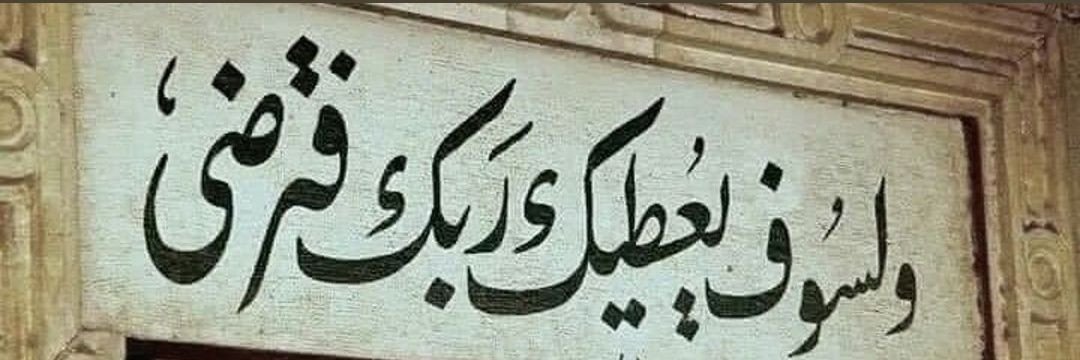 ولسُوف يعُطيك رَبك فترضى